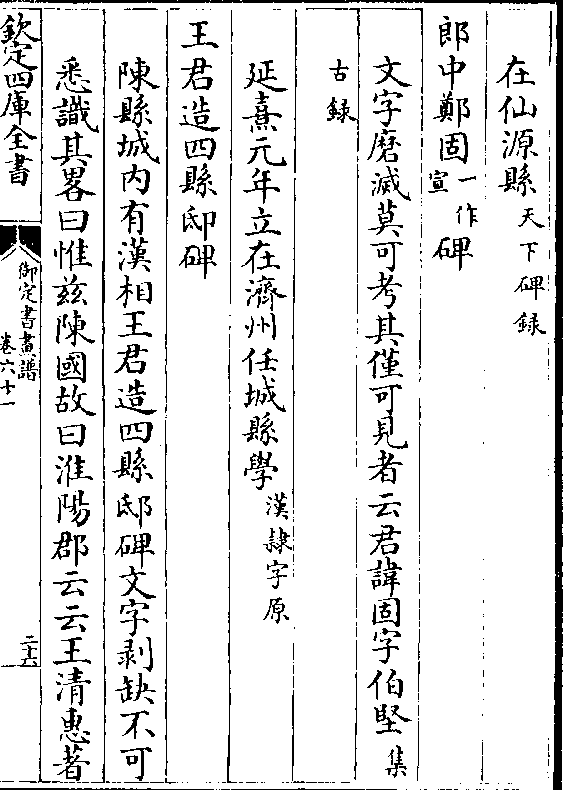 在仙源縣天下碑録
郎中鄭固一作宣碑
文字磨滅莫可考其僅可見者云君諱固字伯堅集
古録
延熹元年立在濟州任城縣學漢隷字原
王君造四縣邸碑
陳縣城内有漢相王君造四縣邸碑文字剥缺不可
悉識其畧曰惟兹陳國故曰淮陽郡云云王清惠著
欽定四庫全書
御定書畫譜
卷六十一
二十六